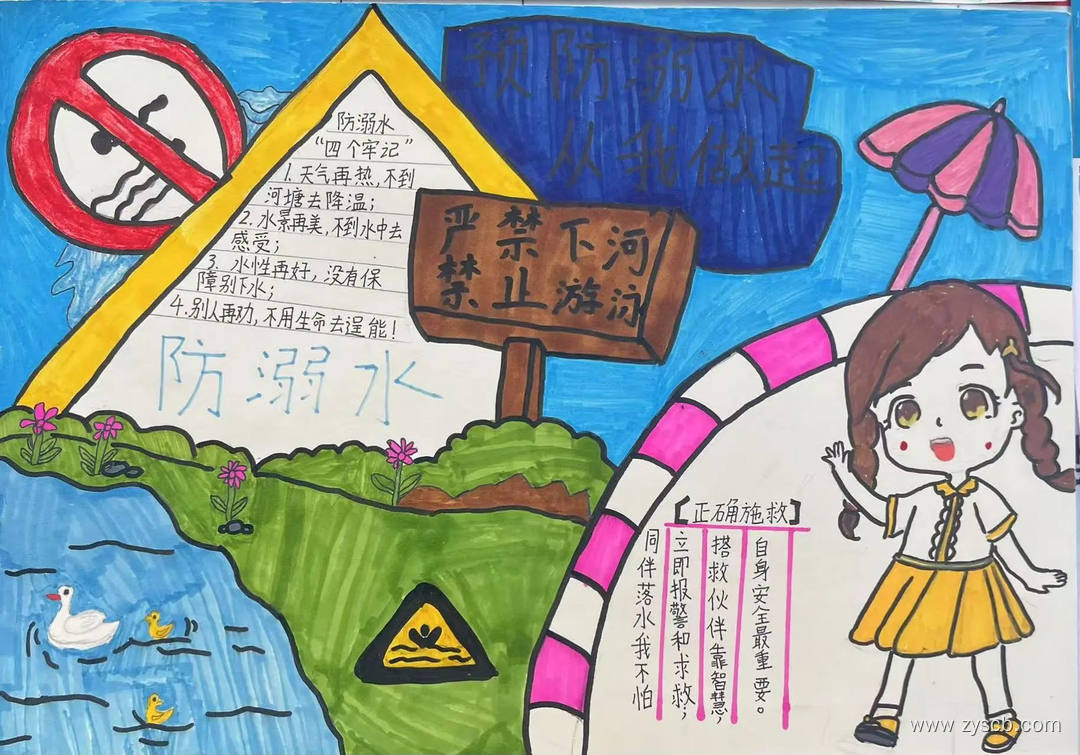 预防溺水
从我做起
防溺水
“四个牢记”
1.天气再热,不到
河塘去降温;
2.水景再美,不到水中去
感受;
3.水性再好,没有保
障别下水;
4.别人再劝,不用生命去逞能!
防溺水
严禁下河
禁止游泳
【正确施救】
同伴落水我不怕
立即报警和求救;
搭救伙伴靠智慧,
自身安全最重要。
www.zyscb.com